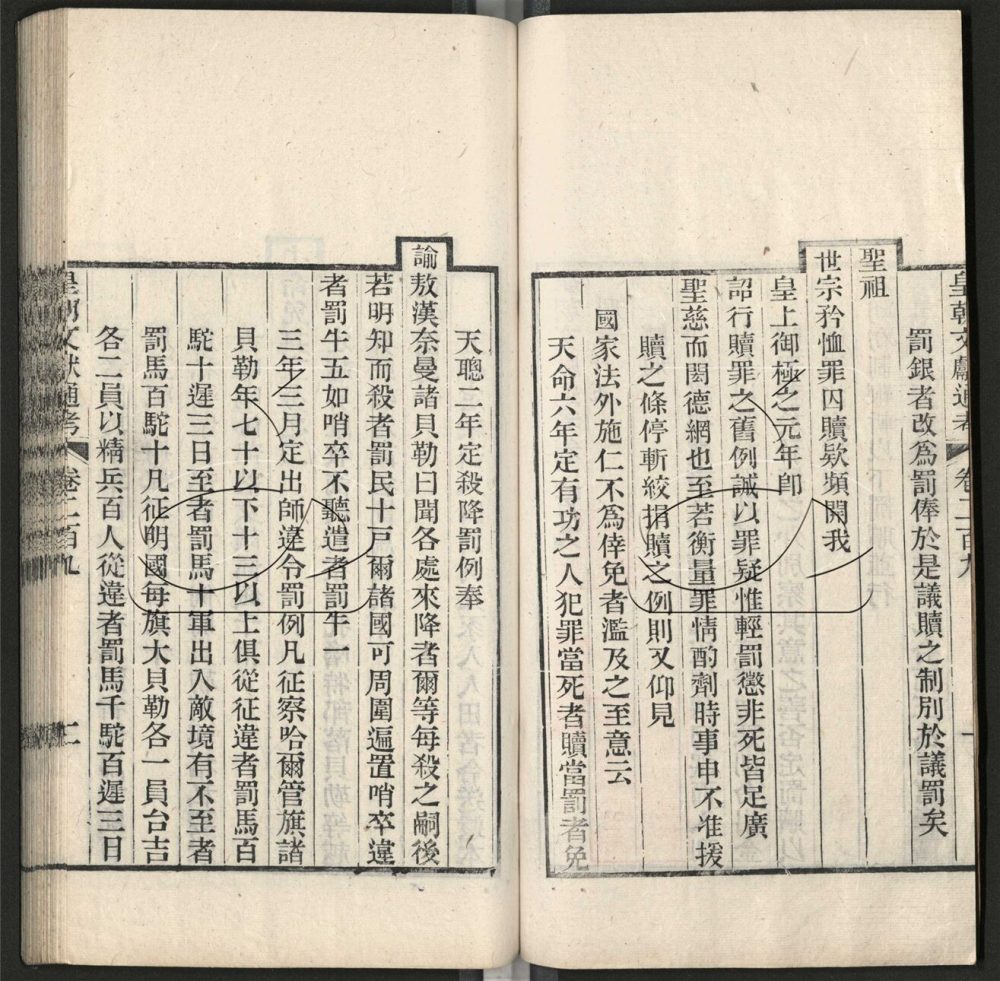 皇朝文獻通考 卷二百九 一
罰銀者改爲罰俸於是議贖之制別於議罰矣
聖祖
世宗矜恤罪囚贖欵頻開我
皇上御極之元年卽
詔行贖罪之舊例誠以罪疑惟輕罰懲非死皆足廣
聖慈而閎德網也至若衡量罪情酌劑時事申不准援
贖之條停斬絞捐贖之例則又仰見
國家法外施仁不爲倖免者濫及之至意云
天命六年定有功之人犯罪當死者贖當罰者免
天聰二年定殺降罰例奉
諭敖漢奈曼諸貝勒曰聞各處來降者爾等每殺之嗣後
若明知而殺者罰民十戸爾諸國可周圍遍置哨卒違
者罰牛五如哨卒不聽遣者罰牛一
三年三月定出師違令罰例凡征察哈爾管旗諸
貝勒年七十以下十三以上俱從征違者罰馬百
駝十遲三日至者罰馬十軍出入敵境有不至者
罰馬百駝十凡征明國每旗大貝勒各一員台吉
各二員以精兵百人從違者罰馬千駝百遲三日
皇朝文獻通考 卷二百九 二